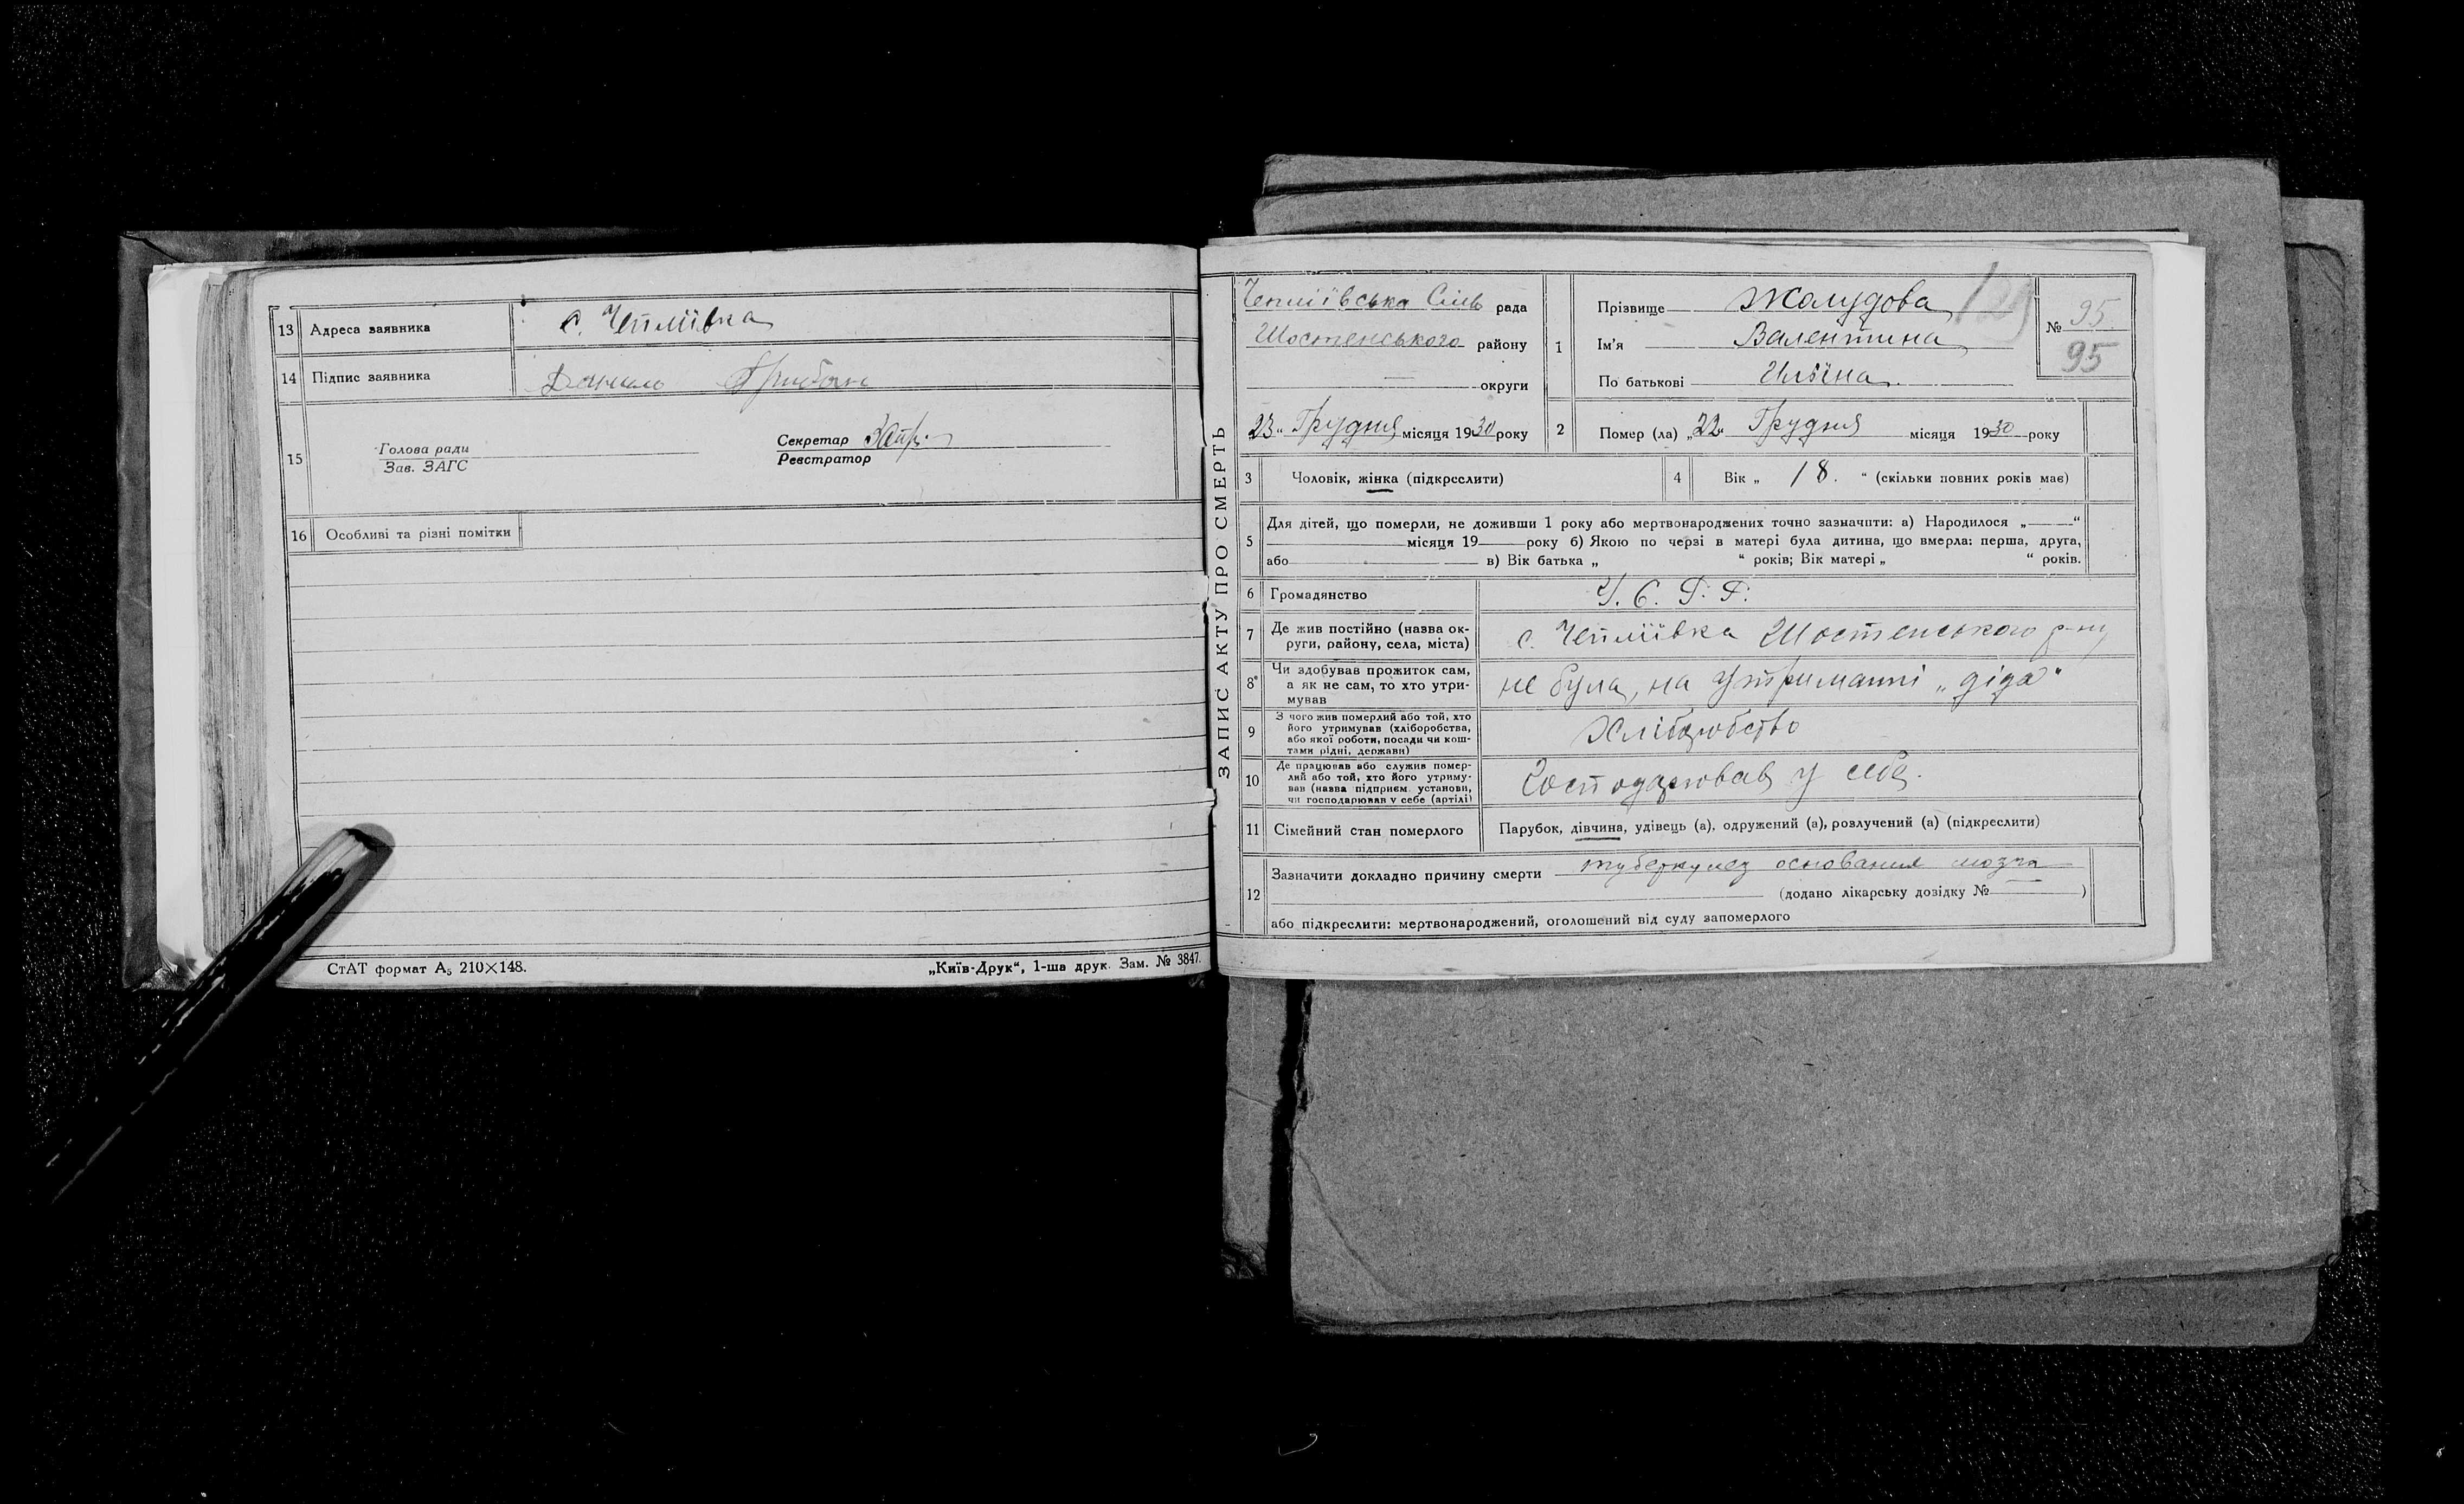 13 Адреса заявника с. Чепліївка
14 Підпис заявника Данило
15 Голова ради
Зав. ЗАГС
Секретар
Реєстратор
16 Особливі та різні помітки
СтАТ формат А₅ 210×148.
„Київ-Друк“, 1-ша друк. Зам. № 3847.
ЗАПИС АКТУ ПРО СМЕРТЬ
Чепліївська Сіль рада
Шостенського району
— округи
„23“ Грудня місяця 1930 року
1 Прізвище Жолудова
Ім'я Валентина
По батькові
№ 95
95
2 Помер (ла) „22“ Грудня місяця 1930 року
3 Чоловік, жінка (підкреслити)
4 Вік „ 18. “ (скільки повних років має)
5 Для дітей, що померли, не доживши 1 року або мертвонароджених точно зазначити: а) Народилося „——“
місяця 19—— року б) Якою по черзі в матері була дитина, що вмерла: перша, друга,
або —— в) Вік батька „ “ років; Вік матері „ “ років.
6 Громадянство У. С. Р. Р.
7 Де жив постійно (назва ок-
руги, району, села, міста)
с. Чепліївка Шостенського р-ну
8 Чи здобував прожиток сам,
а як не сам, то хто утри-
мував
не була, на утриманні „діда“
9 З чого жив померлий або той, хто
його утримував (хліборобства,
або якої роботи, посади чи кош-
тами рідні, держави)
Хліборобство
10 Де працював або служив помер-
лий або той, хто його утриму-
вав (назва підприєм. установи,
чи господарював у себе (артілі)
Господарював у себе.
11 Сімейний стан померлого Парубок, дівчина, удівець (а), одружений (а), розлучений (а) (підкреслити)
12 Зазначити докладно причину смерти туберкулез основания мозга
(додано лікарську довідку № —— )
або підкреслити: мертвонароджений, оголошений від суду запомерлого